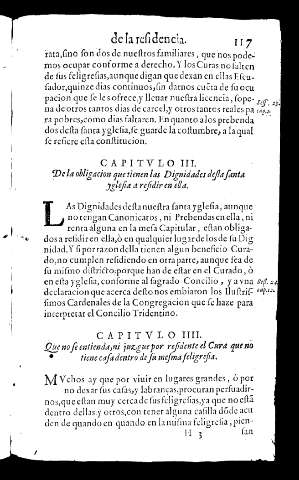 de la residencia. 117
rata, sino son dos de nuestros familiares, que nos pode-
mos ocupar conforme a derecho. Y los Curas no falten
de sus feligresias, aunque digan que dexan en ellas Escu-
sador, quinze dias continuos, sin darnos cuēta de su ocu
pacion que se les ofrece, y lleuar nuestra licencia, so pe-
na de otros tantos dias de carcel, y otros tantos reales pa
ra pobres, como dias faltaren. En quanto a los prebenda
dos desta santa yglesia, se guarde la costumbre, a la qual
se refiere esta constitucion.
CAPITVLO III.
De la obligacion que tienen las Dignidades desta santa
yglesia a residir en ella.
LAs Dignidades desta nuestra santa yglesia, aunque
no tengan Canonicatos, ni Prebendas en ella, ni
renta alguna en la mesa Capitular, estan obliga-
dos a residir en ella, ò en qualquier lugar de los de su Dig
nidad. Y si por razon della tienen algun beneficio Cura-
do, no cumplen residiendo en otra parte, aunque sea de
su mismo districto, porque han de estar en el Curado, ò
en esta yglesia, conforme al sagrado Concilio, y a vna
declaracion que acerca desto nos embiaron los Illustris-
simos Cardenales de la Congregacion que se haze para
interpretar el Concilio Tridentino.
CAPITVLO IIII.
Que no se entienda, ni juzgue por residente el Cura que no
tiene casa dentro de su mesma feligresia.
MVchos ay que por viuir en lugares grandes, ò por
no dexar sus casas, y labranças, procuran persuadir-
nos, que estan muy cerca de sus feligresias, ya que no estā
dentro dellas, y otros, con tener alguna casilla dōde acu
den de quando en quando en la misma feligresia, pien-
H 3 san